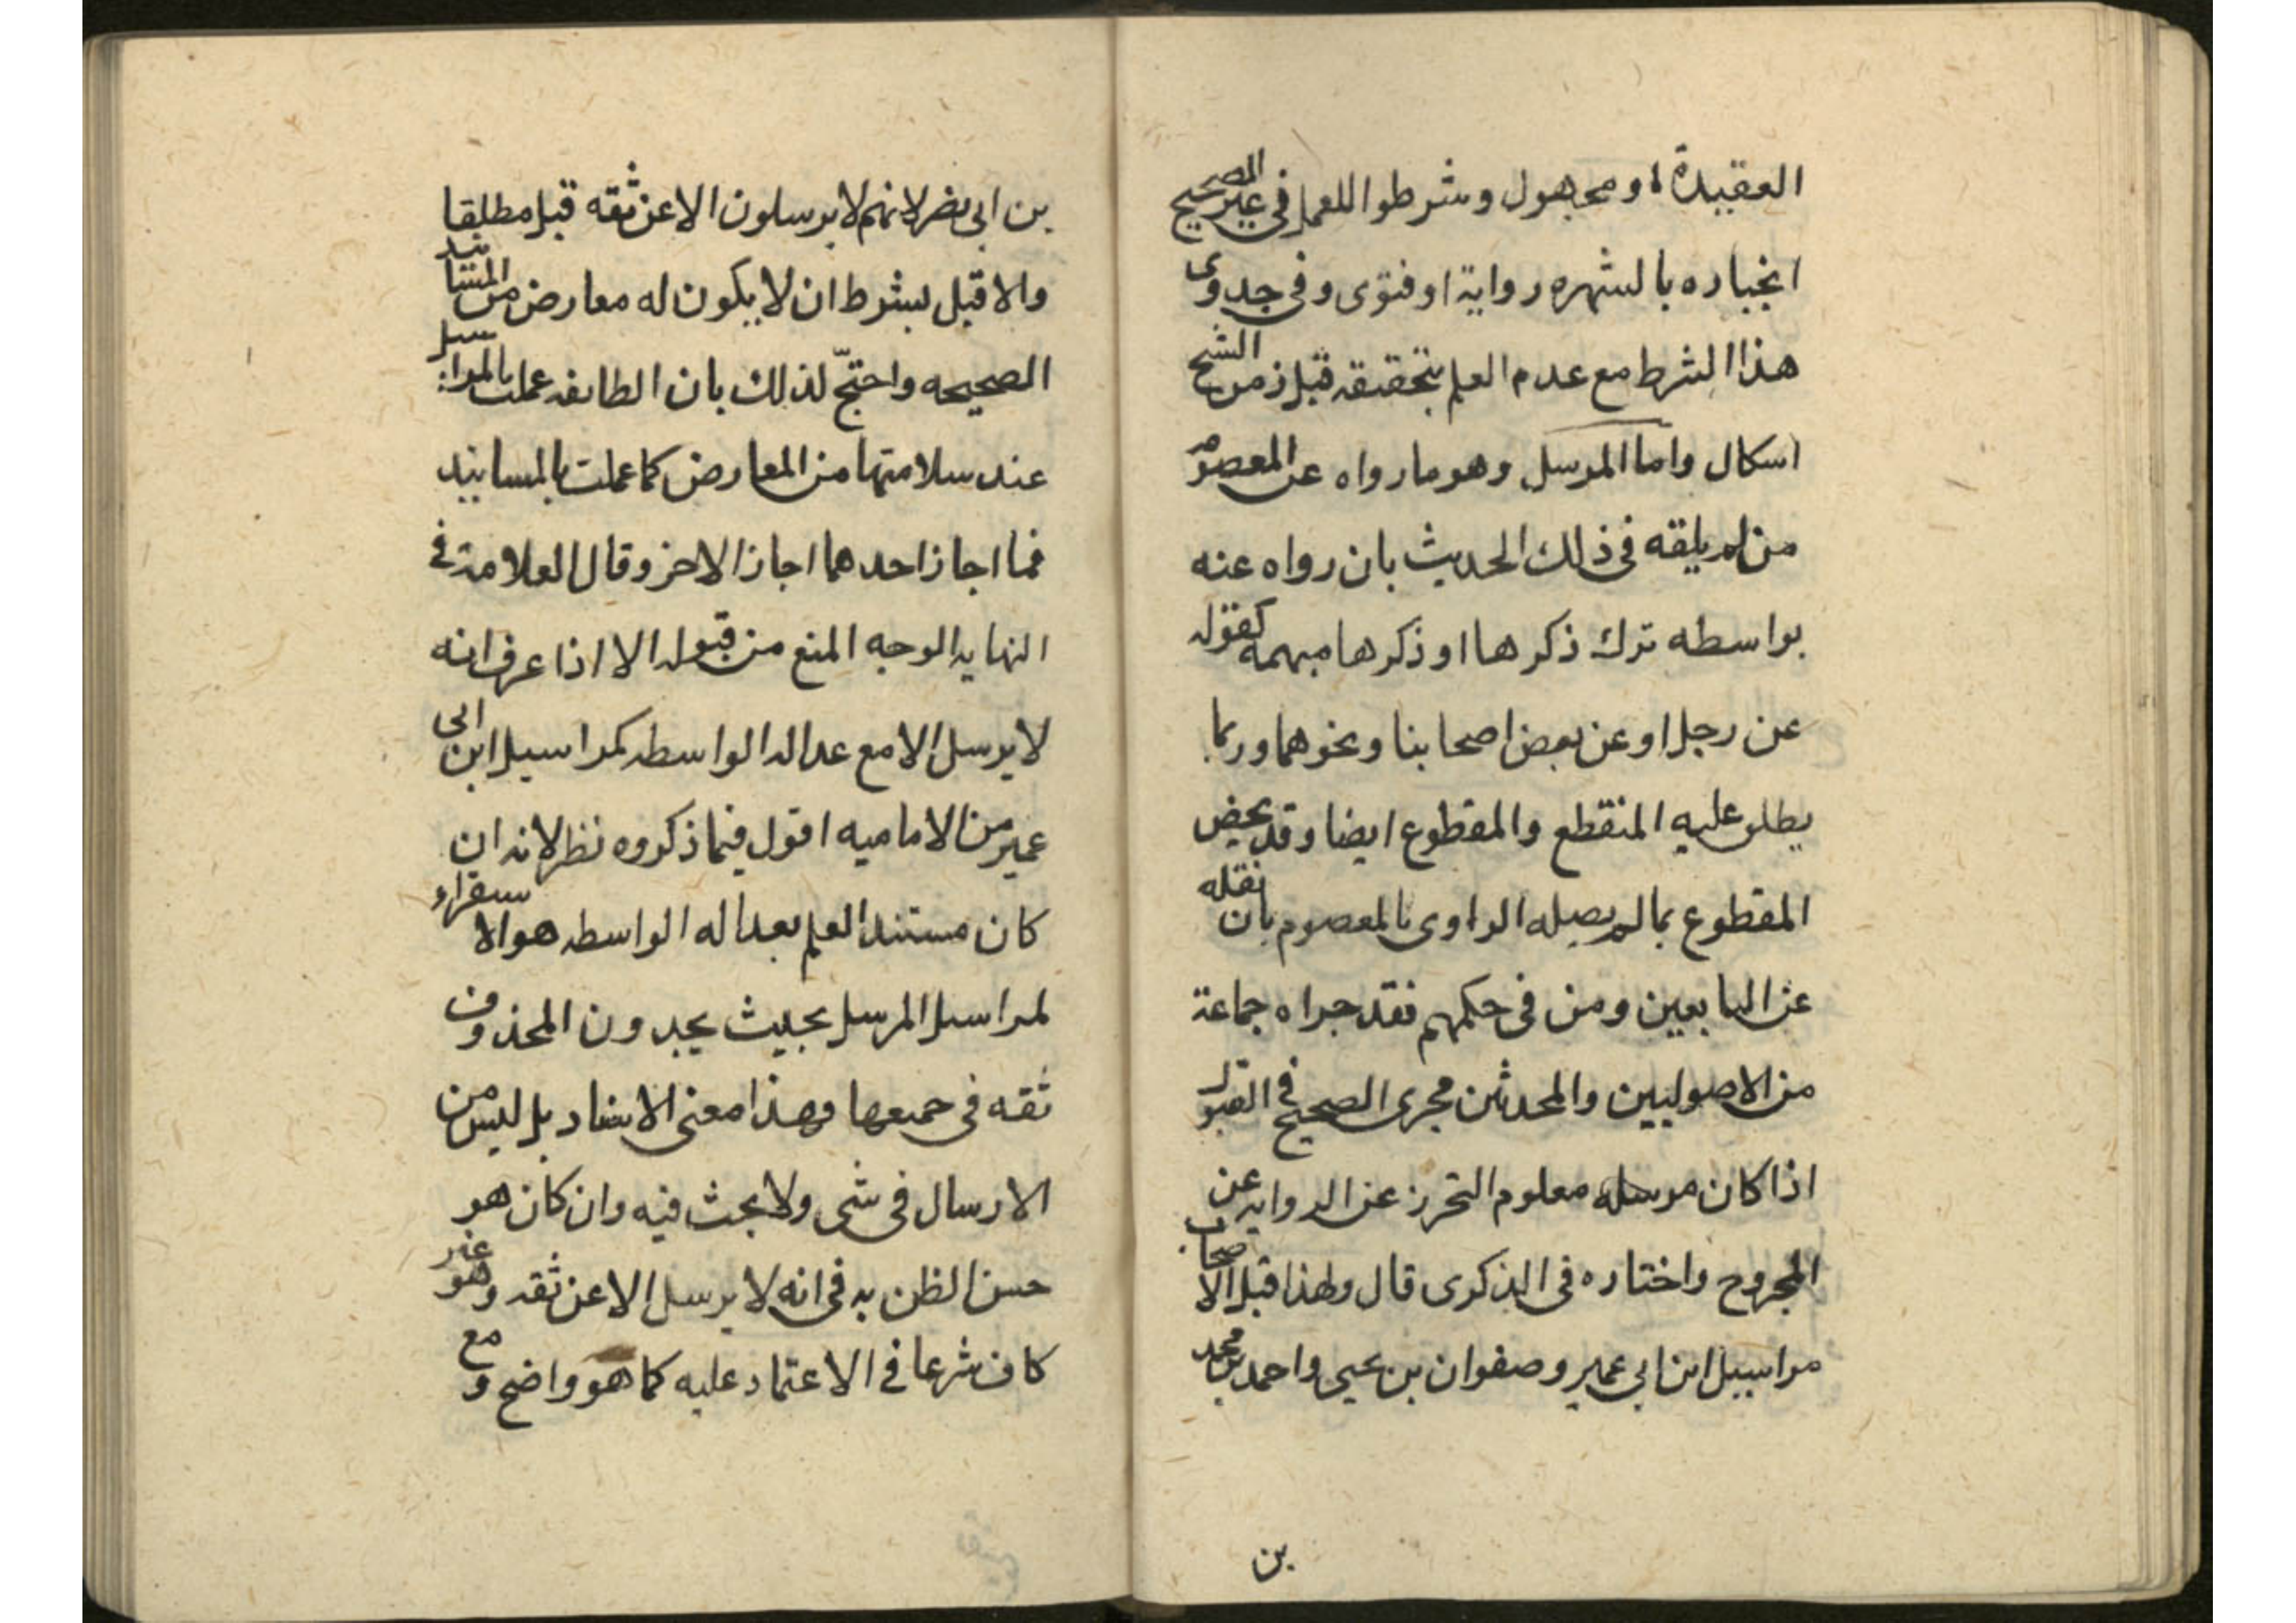 العقيدة او مجهول وشرطوا للعمل في غير الصحيح
انجباره بالشهره رواية او فتوى وفي جدوى
هذا الشرط مع عدم العلم بتحققه قبل زمن الشيخ
اسكال واما المرسل وهو ما رواه عن المعصوم
من لم يلقه في ذلك الحديث بان رواه عنه
بواسطه ترك ذكرها او ذكرها مبهمه كقوله
عن رجل او عن بعض اصحابنا ونحوهما وربما
يطلق عليه المنقطع والمقطوع ايضا وقد يخص
المقطوع بما لم يصله الراوى بالمعصوم بان نقله
عن التابعين ومن في حكمهم فقد جراه جماعة
من الاصوليين والمحدثين مجرى الصحيح في القبول
اذا كان مرسله معلوم التحرز عن الروايه عن
المجروح واختاره في الذكرى قال ولهذا قبل الاصحاب
مراسيل ابن ابي عمير وصفوان بن يحيى واحمد بن محمد
بن
بن ابي نضر لانهم لا يرسلون الا عن ثقه قبل مطلقا
والا قبل بشرط ان لا يكون له معارض من المسانيد
الصحيحه واحتجّ لذلك بان الطايفه عملت بالمراسيل
عند سلامتها من المعارض كما عملت بالمسانيد
فما اجاز احدهما اجاز الاخر وقال العلامة في
النهايه الوجه المنع من قبوله الا اذا عرف انه
لا يرسل الا مع عداله الواسطه كمراسيل ابن ابى
عمير من الاماميه اقول فيما ذكروه نظر لانه ان
كان مستند العلم بعداله الواسطه هو الاستقراء
لمراسيل المرسل بحيث يجدون المحذوف
ثقه في جميعها وهذا معنى الاسناد بل ليس من
الارسال في شى ولا بحث فيه وان كان هو
حسن الظن به في انه لا يرسل الا عن ثقه وهو غير
كاف شرعا في الاعتماد عليه كما هو واضح ومع